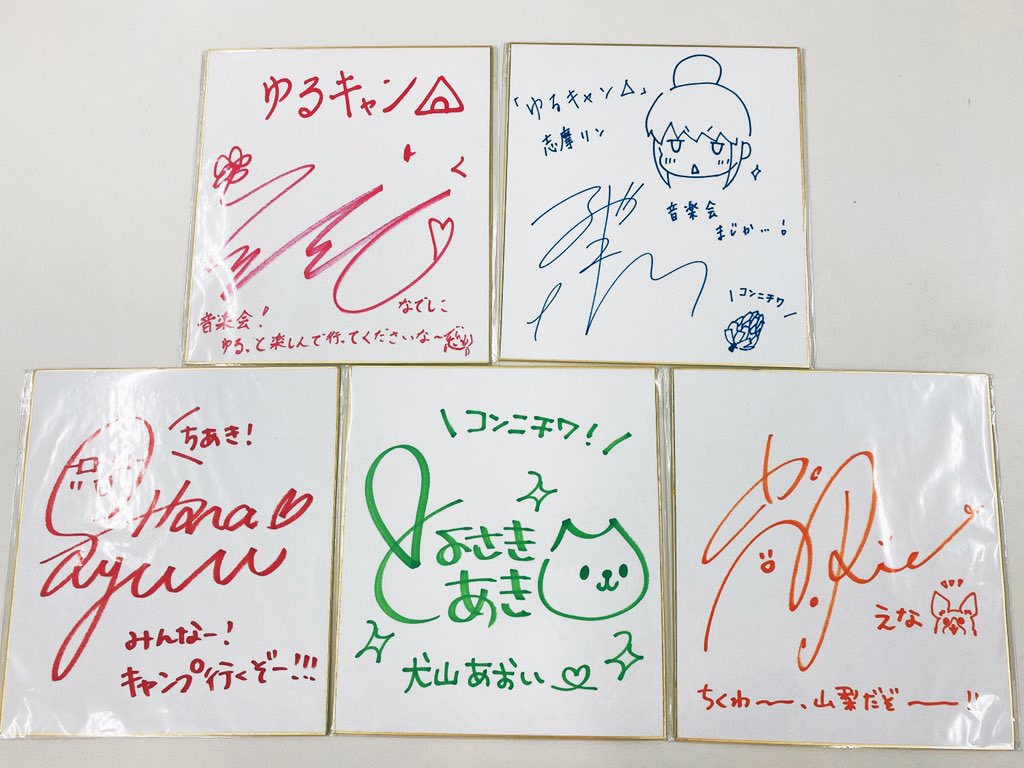 ゆるキャン△
なでしこ
音楽会!
ゆるっと楽しんで行ってくださいな〜
「ゆるキャン△」
志摩リン
音楽会
まじか…!
コンニチワ
ちあき!
Hara
ayumi
みんなー!
キャンプ行くぞー!!!
コンニチワ!
とよさき
あき
犬山あおい
Rie
えな
ちくわ〜、山梨だぞ〜!!